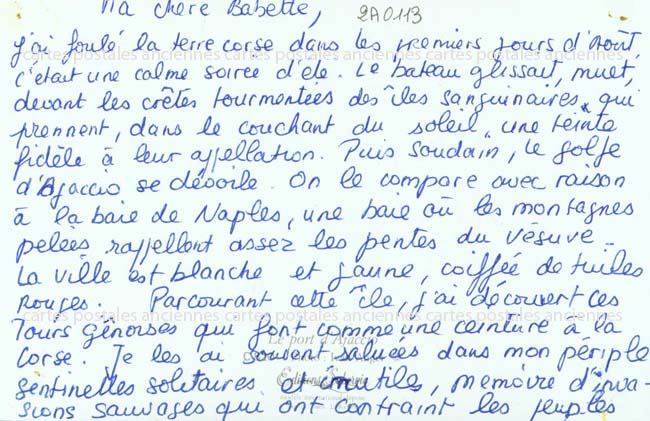 Ma chère Babette, 2A0113
j'ai foulé la terre corse dans les premiers jours d'Août,
c'était une calme soirée d'été. Le bateau glissait, muet,
devant les crêtes tourmentées des îles sanguinaires qui
prennent, dans le couchant du soleil, une teinte
fidèle à leur appellation. Puis soudain, le golfe
d'Ajaccio se dévoile. On le compare avec raison
à la baie de Naples, une baie où les montagnes
pelées rappellent assez les pentes du vésuve.
La ville est blanche et jaune, coiffée de tuiles
rouges. Parcourant cette île, j'ai découvert ces
cartes postales anciennes cartes postales anciennes cartes postales anciennes
Tours gênoises qui font comme une ceinture à la
Le port d'Ajaccio
Corse. Je les ai souvent saluées dans mon périple
sentinelles solitaires et inutiles, mémoire d'inva-
sions sauvages qui ont contraint les peuples